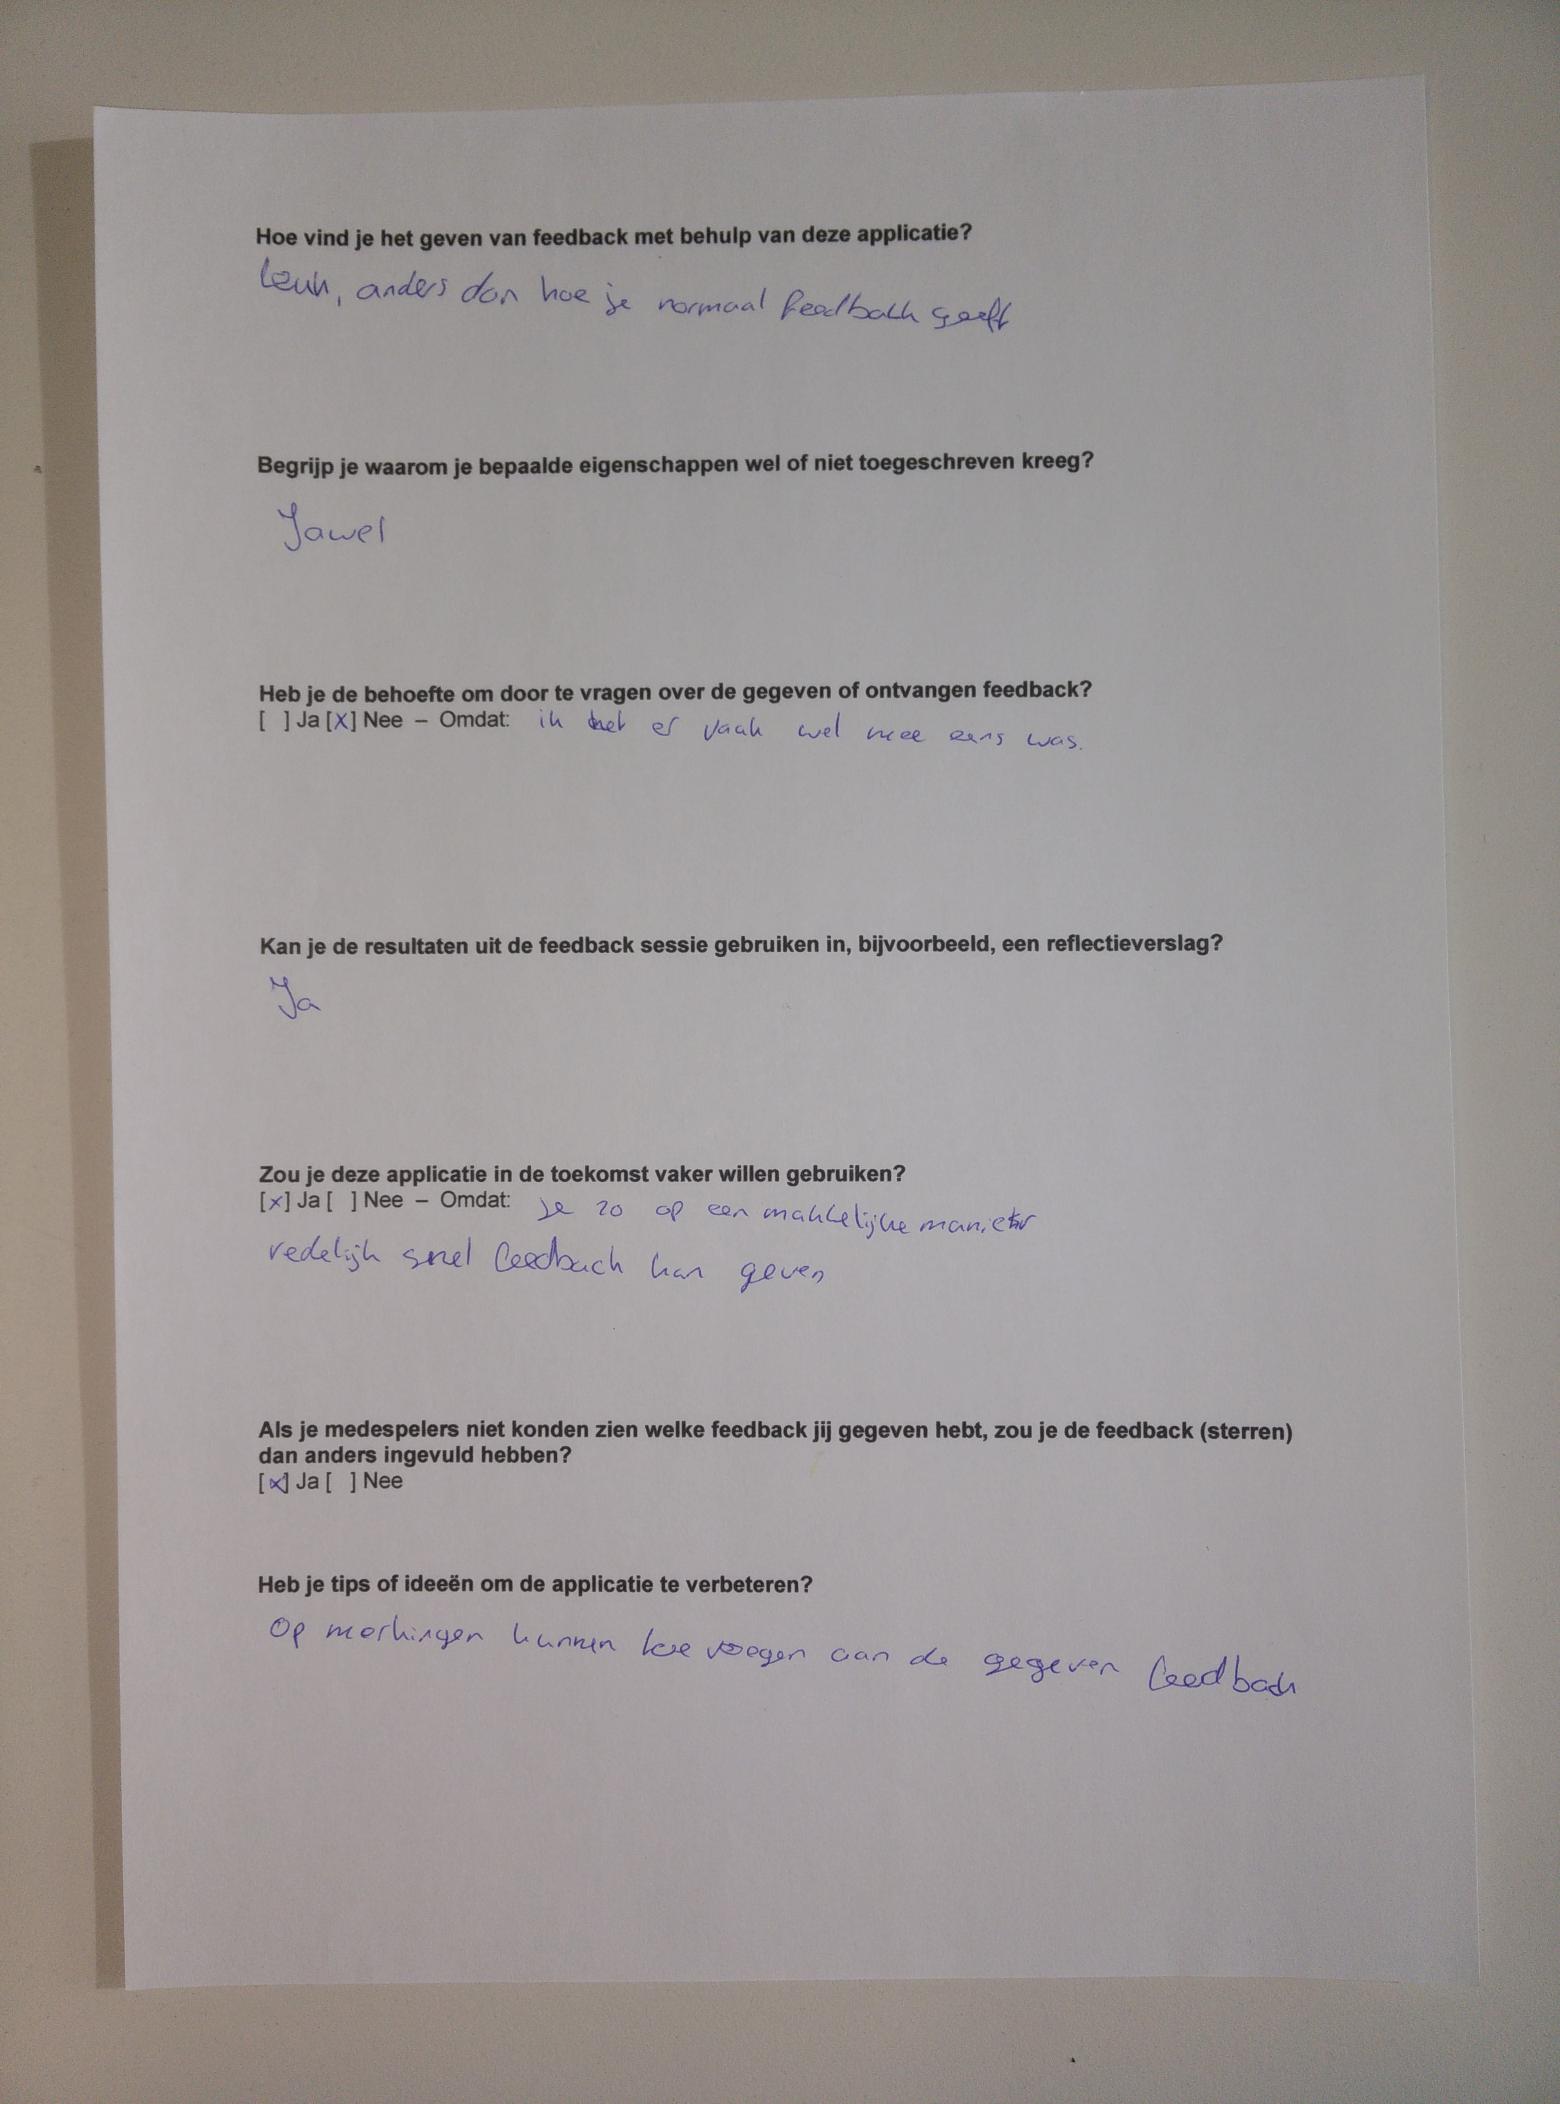 Hoe vind je het geven van feedback met behulp van deze applicatie?
Leuk, anders dan hoe je normaal feedback geeft
Begrijp je waarom je bepaalde eigenschappen wel of niet toegeschreven kreeg?
Jawel
Heb je de behoefte om door te vragen over de gegeven of ontvangen feedback?
[ ] Ja [X] Nee – Omdat: ik het er vaak wel mee eens was.
Kan je de resultaten uit de feedback sessie gebruiken in, bijvoorbeeld, een reflectieverslag?
Ja
Zou je deze applicatie in de toekomst vaker willen gebruiken?
[x] Ja [ ] Nee – Omdat: je zo op een makkelijke manier
redelijk snel feedback kan geven
Als je medespelers niet konden zien welke feedback jij gegeven hebt, zou je de feedback (sterren)
dan anders ingevuld hebben?
[x] Ja [ ] Nee
Heb je tips of ideeën om de applicatie te verbeteren?
Op merkingen kunnen toe voegen aan de gegeven feedback